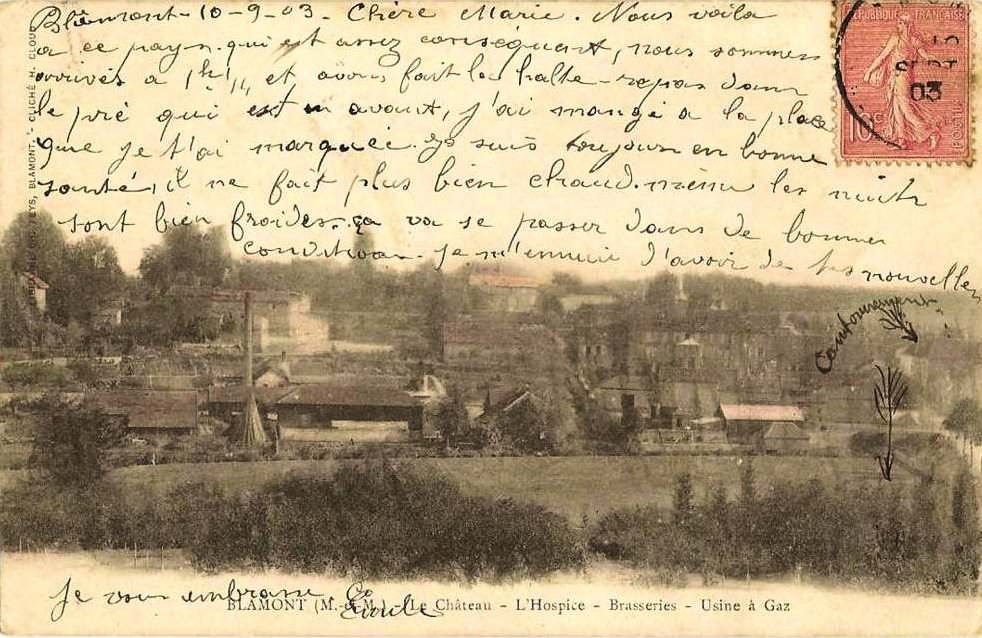 Blâmont - 10-9-03. Chère Marie. Nous voila
a ce pays. qui est assez conséquant, nous sommes
arrivés a 1h et avons fait la halte-repas dans
le pré qui est en avant, j'ai mangé a la place
que je t'ai marquée. Je suis toujours en bonne
santé, il ne fait plus bien chaud. même les nuits
sont bien froides. ça va se passer dans de bonnes
condition. Je m'ennuie d'avoir de tes nouvelles
Cantonnement
Je vous embrasse
Emile
BLAMONT (M.-et-M.) - Le Château - L'Hospice - Brasseries - Usine à Gaz
BLAMONT. - CLICHÉ H. CLOUD
RÉPUBLIQUE FRANÇAISE
10c
POSTES
SEPT
03